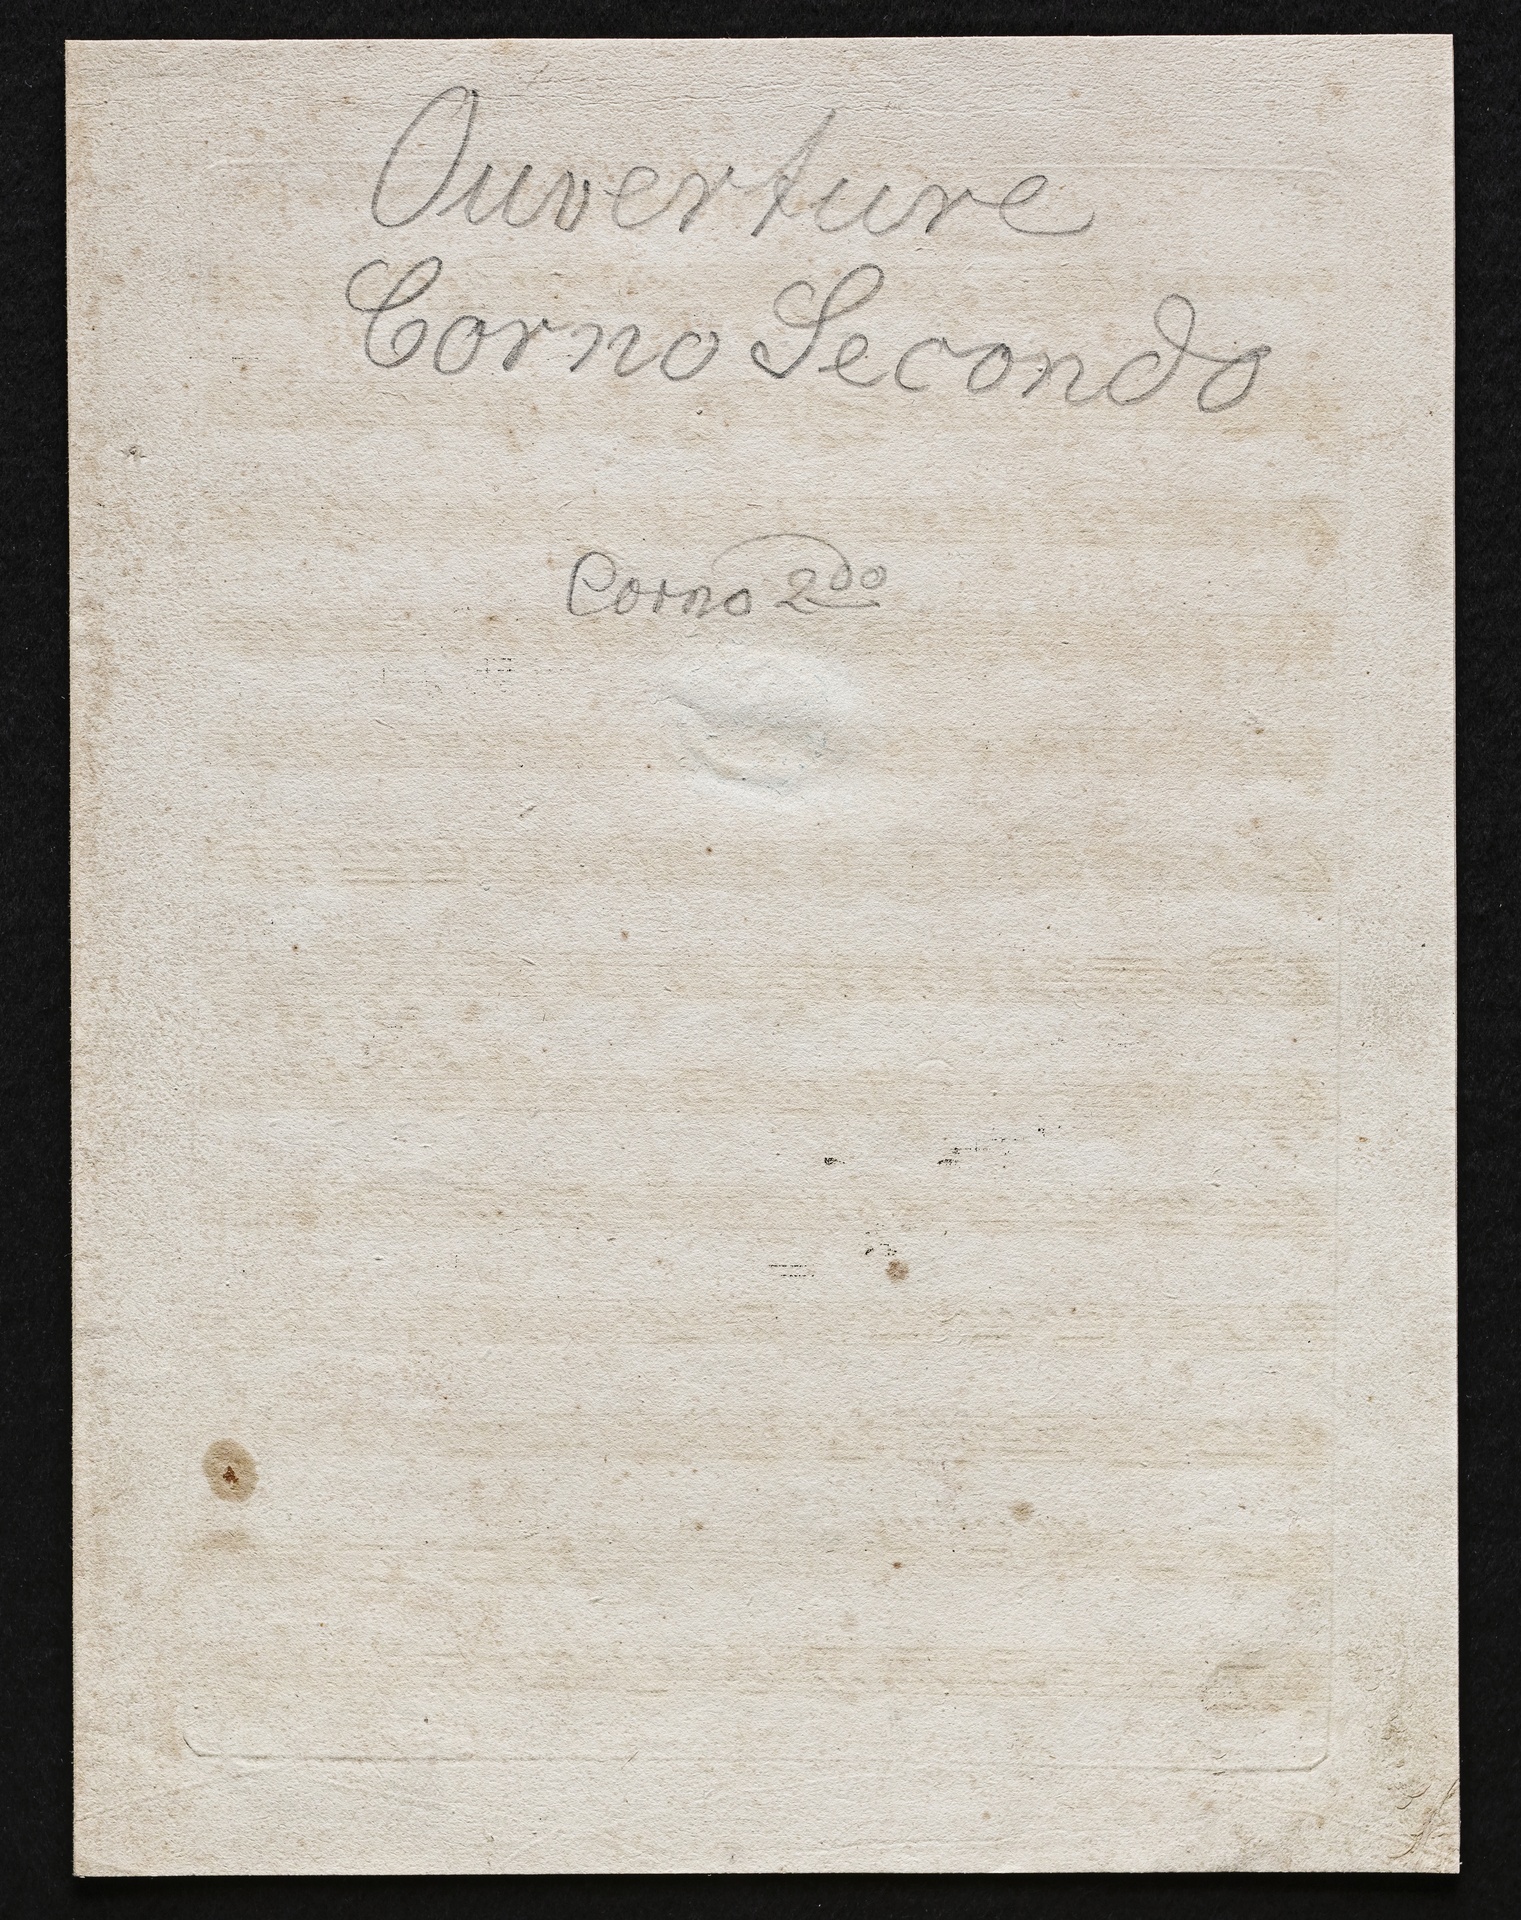 Ouverture
Corno Secondo
Corno 2do